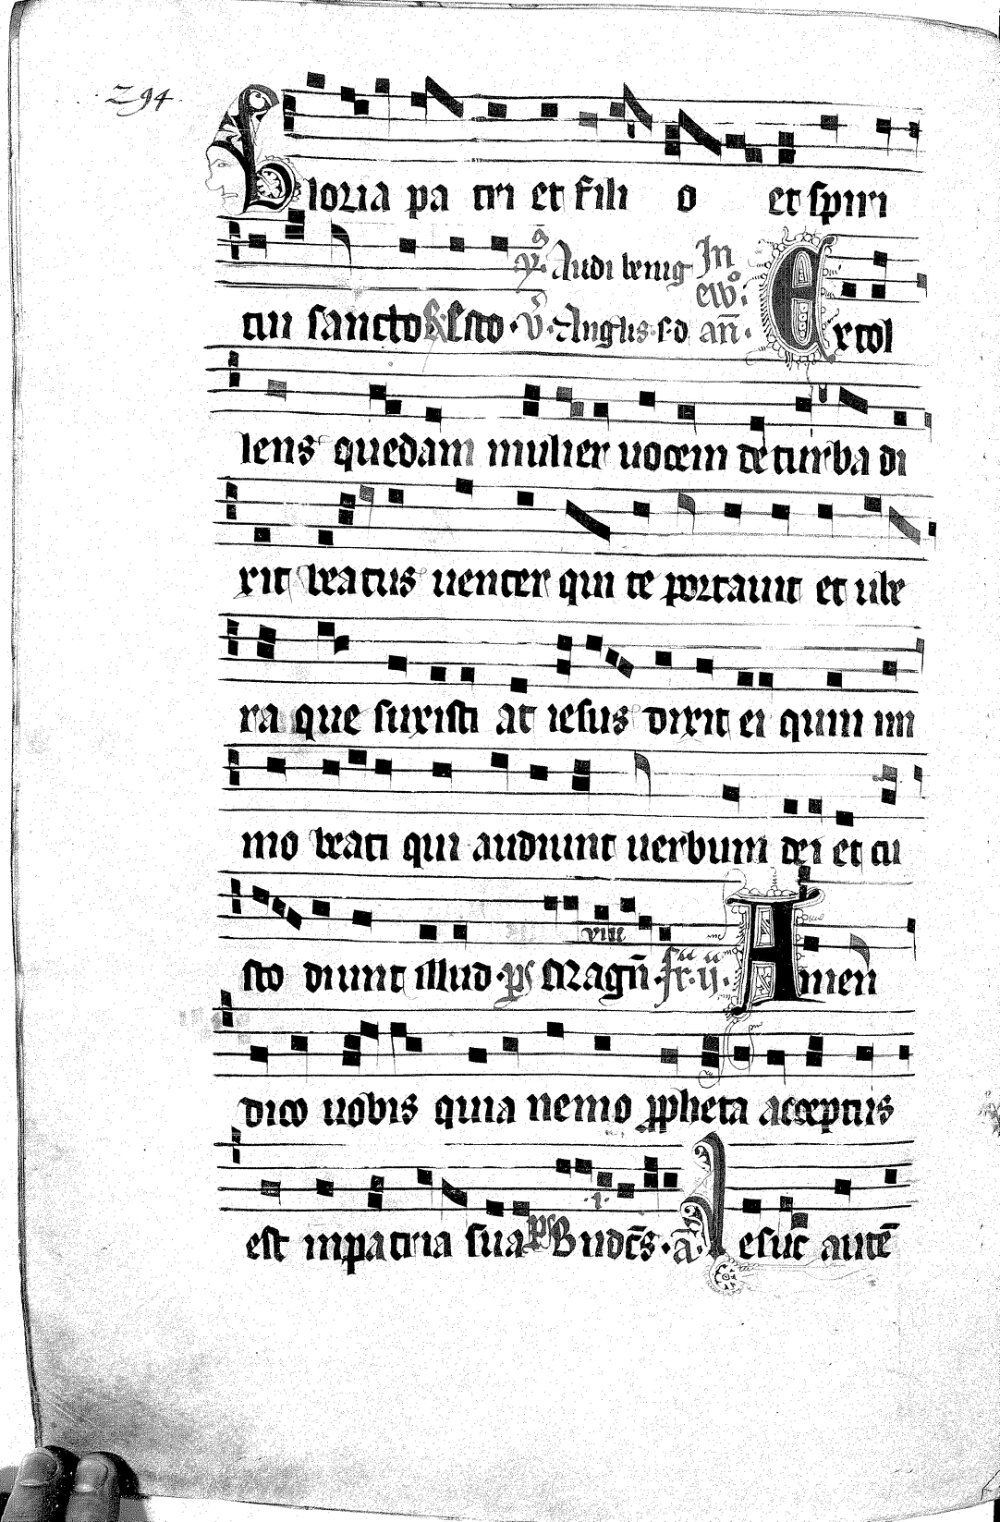 294
Gloria pa tri et fili o et spiri
tui sancto Esto v̄. Angelis. s. d añ. Extol
ỹ. Audi benig In eẘ:
lens quedam mulier uocem de turba di
xit beatus uenter qui te portauit et ube
ra que suxisti at iesus dixit ei quin im
mo beati qui audiunt uerbum dei et cu
viii
sto diunt illud. ps Magñ. fr. ii. Amen
dico uobis quia nemo ppheta acceptus
.i.
est in patria sua ps B ndc̄s. ā. Iesuc aute̅